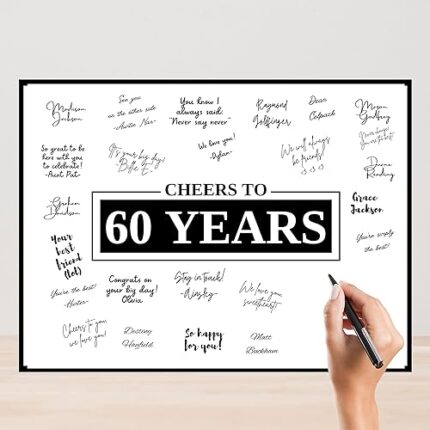 Madison
Jackson
See you
on the other side
-Auntie Nar-
You know I
always said:
"Never say never"
Raymond
Golfinger
Dean
Colpack
Morgan
Godfrey
So great to be
here with you
to celebrate!
-Aunt Pat-
It's your big day!
Billie E.
We love you!
-Dylan-
We will always
be friends!
<3 <3 <3
Deena
Reading
Graham
Davidson
CHEERS TO
60 YEARS
Grace
Jackson
Your
best
friend
(lol)
You're simply
the best!
You're the best!
-Hunter-
Congrats on
your big day!
Olivia
Stay in touch!
-Ainsley-
We love you,
sweetheart!
Cheers to you,
we love you!
Destiny
Hanfield
So happy
for you!
Matt
Buckham